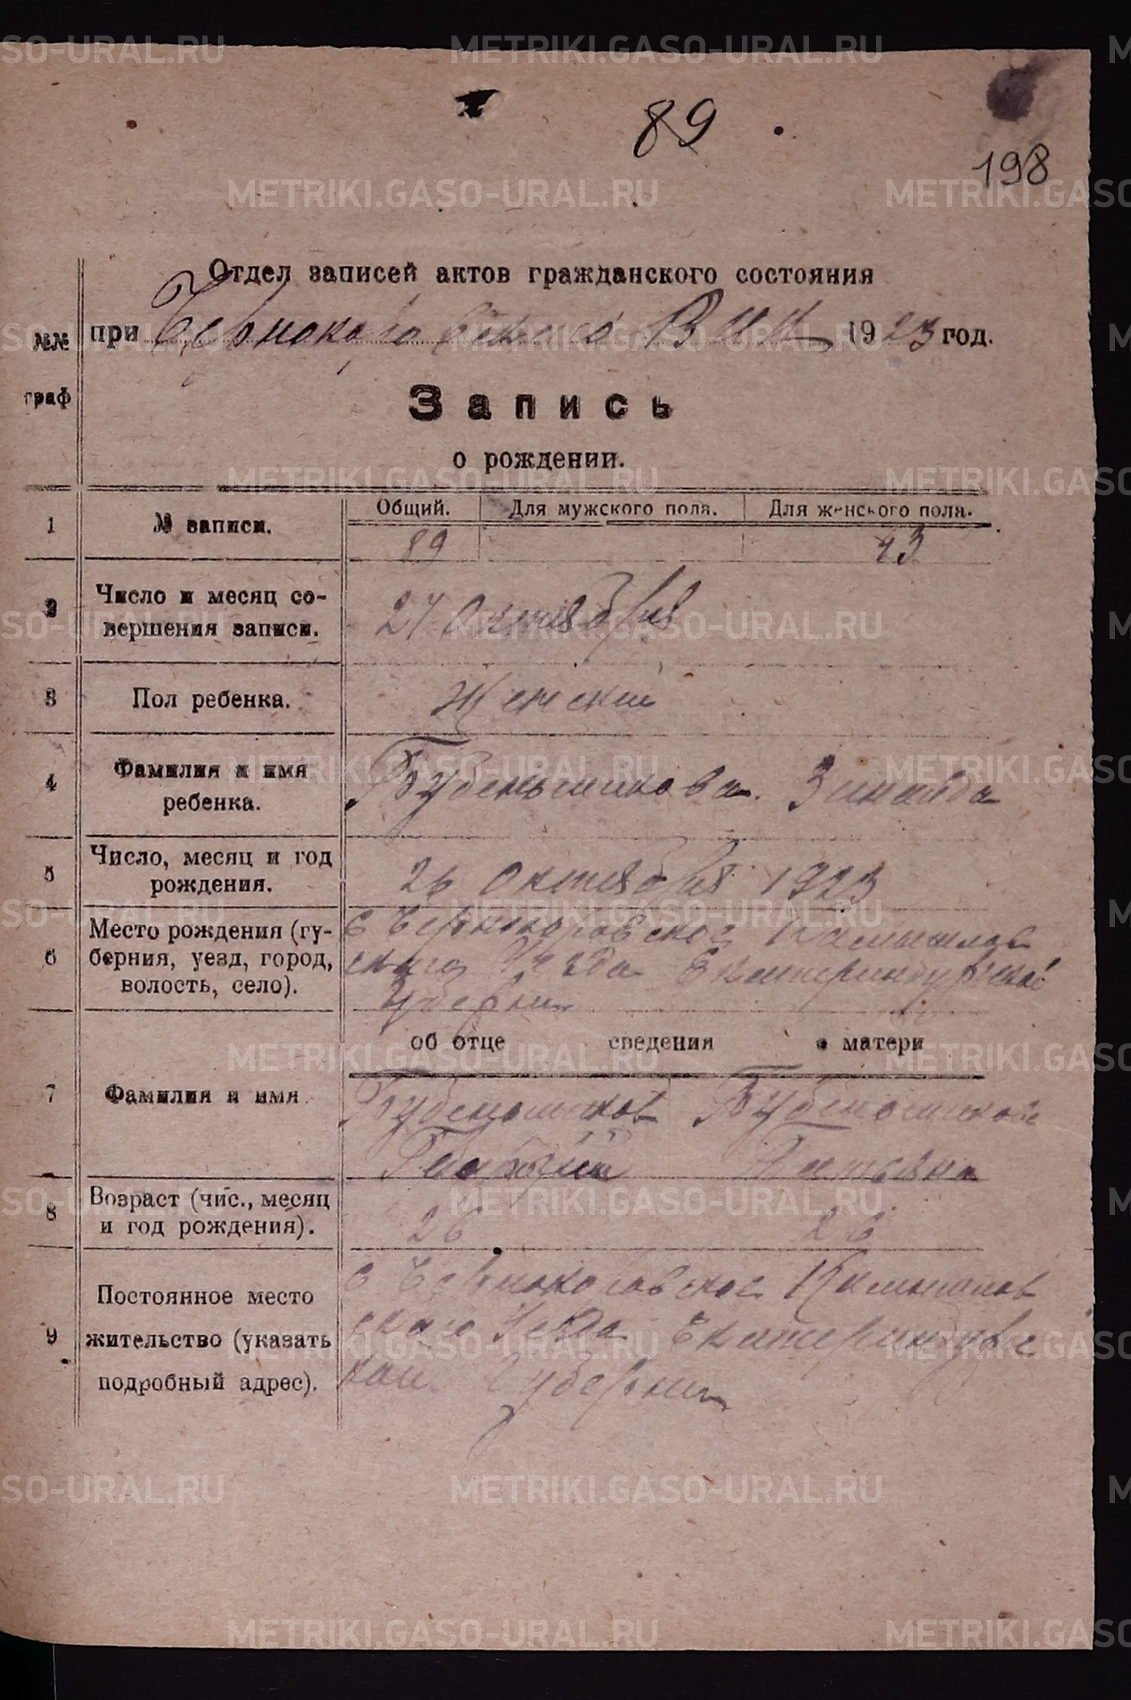 METRIKI.GASO-URAL.RU
89
198
Отдел записей актов гражданского состояния
№№ граф
при Чернокоровского ВИК 1923 год.
Запись
о рождении.
1 № записи. Общий. Для мужского пола. Для женского пола.
89 43
2 Число и месяц со-
вершения записи. 27 Октября
3 Пол ребенка. Женский
4 Фамилия и имя
ребенка. Бубенщикова Зинаида
5 Число, месяц и год
рождения. 26 Октября 1923
6 Место рождения (гу-
берния, уезд, город,
волость, село).
с Чернокоровское Камышлов
ского Уезда Екатеринбургской
Губернии
об отце сведения о матери
7 Фамилия и имя
Георгий Татьяна
8 Возраст (чис., месяц
и год рождения). 26 26
9 Постоянное место
жительство (указать
подробный адрес).
с Чернокоровское Камышлов
ского Уезда Екатеринбургс
кой Губернии